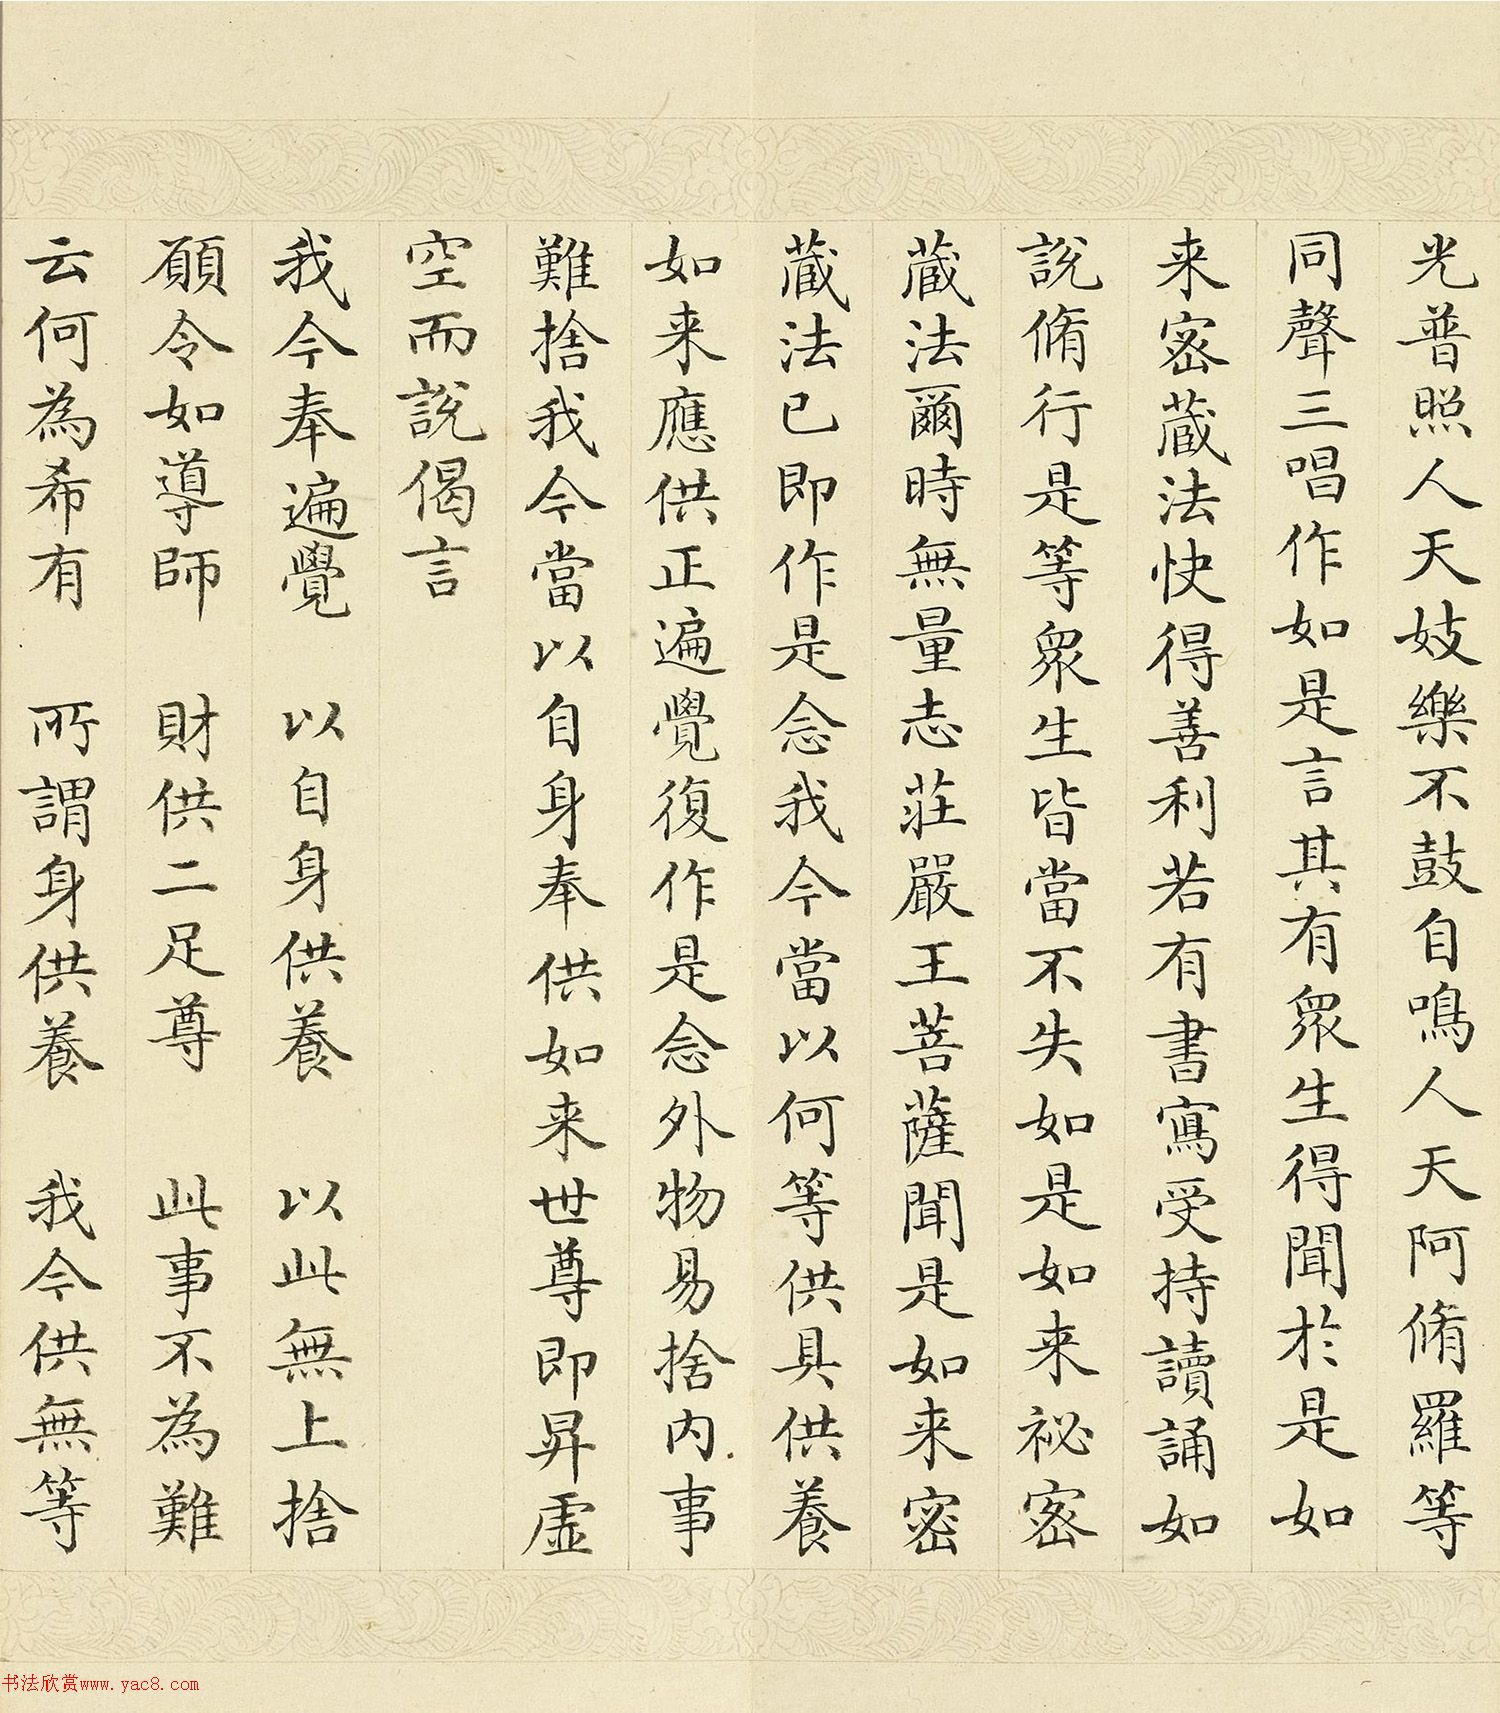 光普照人天妓樂不鼓自鳴人天阿脩羅等
同聲三唱作如是言其有眾生得聞於是如
来密蔵法快得善利若有書寫受持讀誦如
說脩行是等眾生皆當不失如是如来祕密
蔵法爾時無量志莊嚴王菩薩聞是如来密
蔵法已即作是念我今當以何等供具供養
如来應供正遍覺復作是念外物易捨内事
難捨我今當以自身奉供如来世尊即昇虛
空而說偈言
我今奉遍覺 以自身供養 以此無上捨
願令如導師 財供二足尊 此事不為難
云何為希有 所謂身供養 我今供無等
书法欣赏www.yac8.com